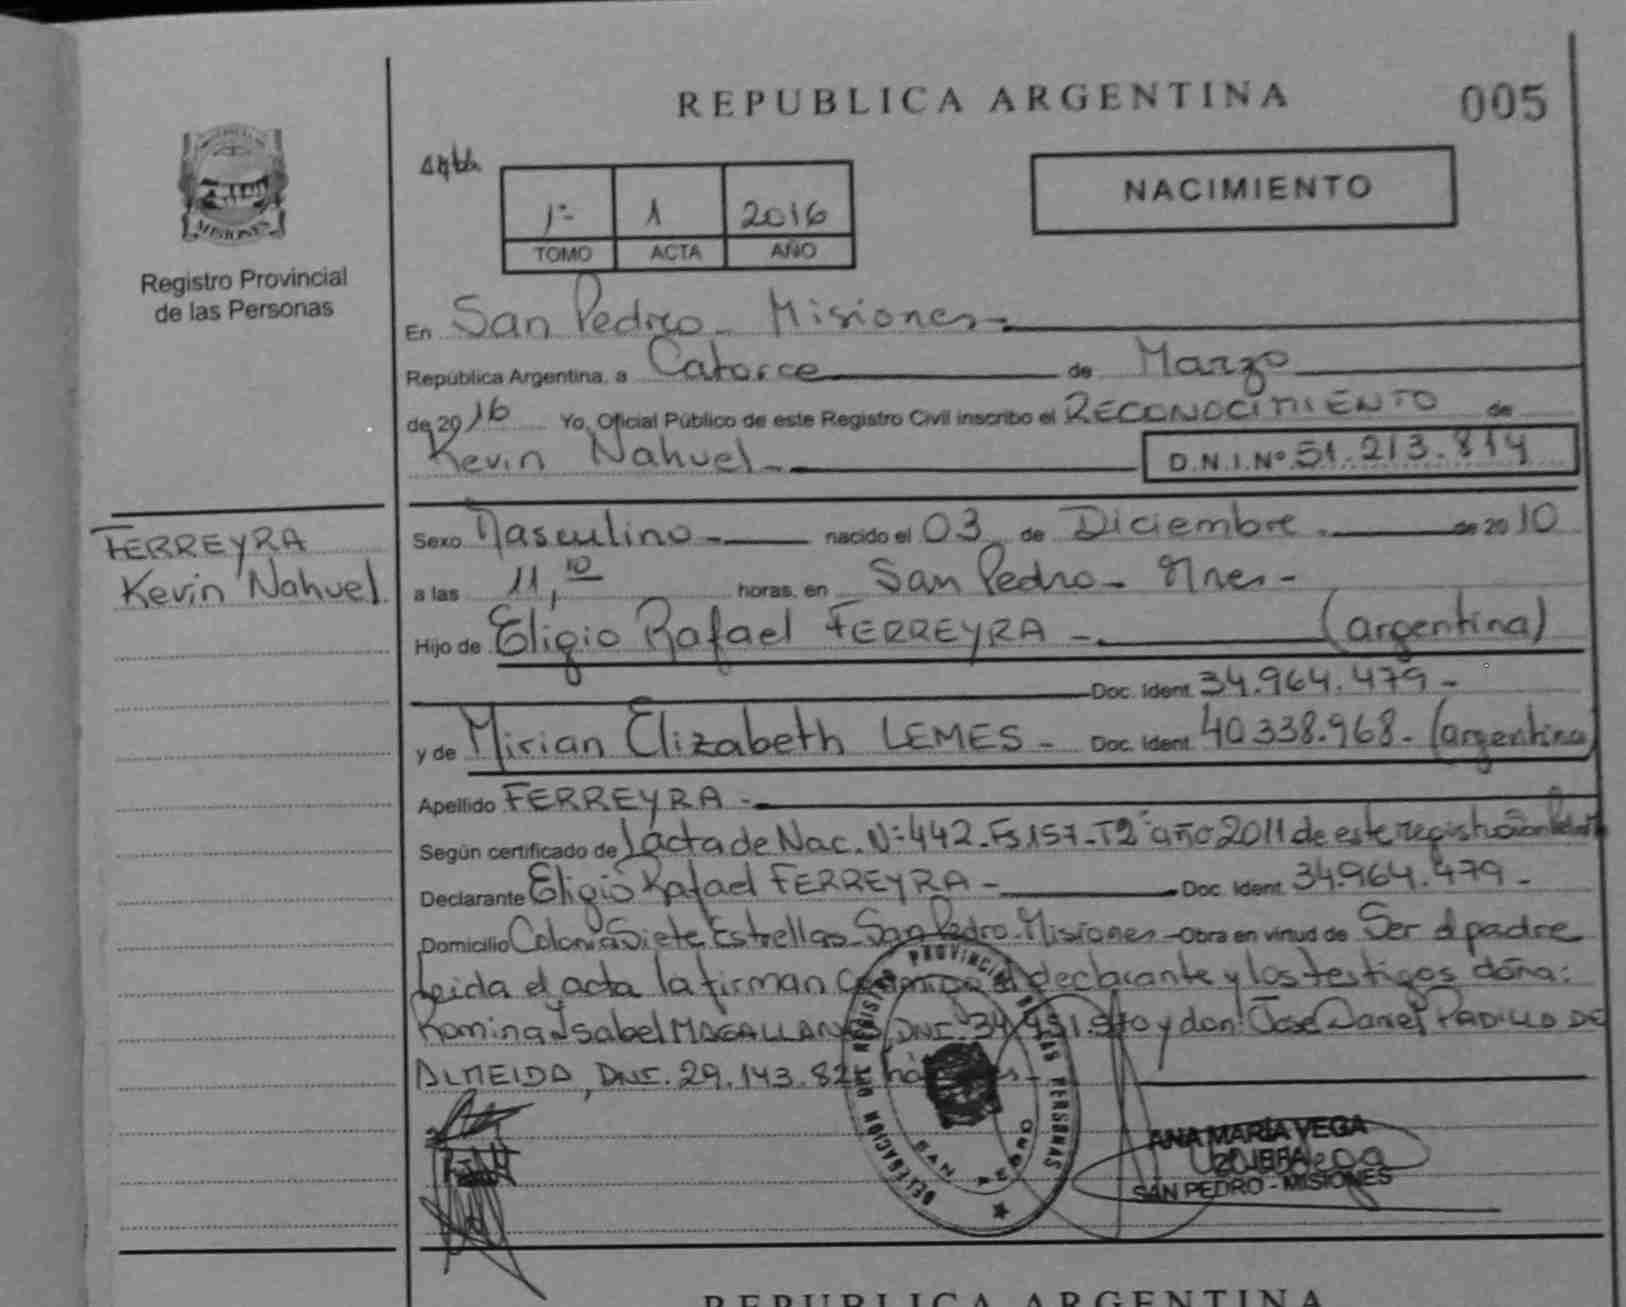 REPUBLICA ARGENTINA
005
NACIMIENTO
1º 1 2016
TOMO ACTA AÑO
MISIONES
Registro Provincial
de las Personas
En San Pedro - Misiones -
República Argentina, a Catorce de Marzo
de 2016 Yo, Oficial Público de este Registro Civil inscribo el RECONOCIMIENTO de
Kevin Nahuel - D.N.I.Nº 51.213.814
FERREYRA
Kevin Nahuel
Sexo Masculino - nacido el 03 de Diciembre - de 2010
a las 11,10 horas, en San Pedro - Mnes -
Hijo de Eligio Rafael FERREYRA - (argentina)
Doc. Ident. 34.964.479 -
y de Mirian Elizabeth LEMES - Doc. Ident. 40.338.968 - (argentina)
Apellido FERREYRA -
Según certificado de acta de Nac. Nº 442 - Fs 157 - T2º año 2011 de este registro
Declarante Eligio Rafael FERREYRA - Doc. Ident. 34.964.479 -
Domicilio Colonia Siete Estrellas - San Pedro - Misiones - Obra en virtud de Ser el padre
Leida el acta la firman el declarante y los testigos doña:
Romina Isabel DNI. y don: Jose Daniel PADILLO DE
ALMEIDA, DNI. 29.143.
DELEGACION DEL REGISTRO PROVINCIAL DE LAS PERSONAS
SAN
ANA MARIA VEGA
JEFA
SAN PEDRO - MISIONES
REPUBLICA ARGENTINA